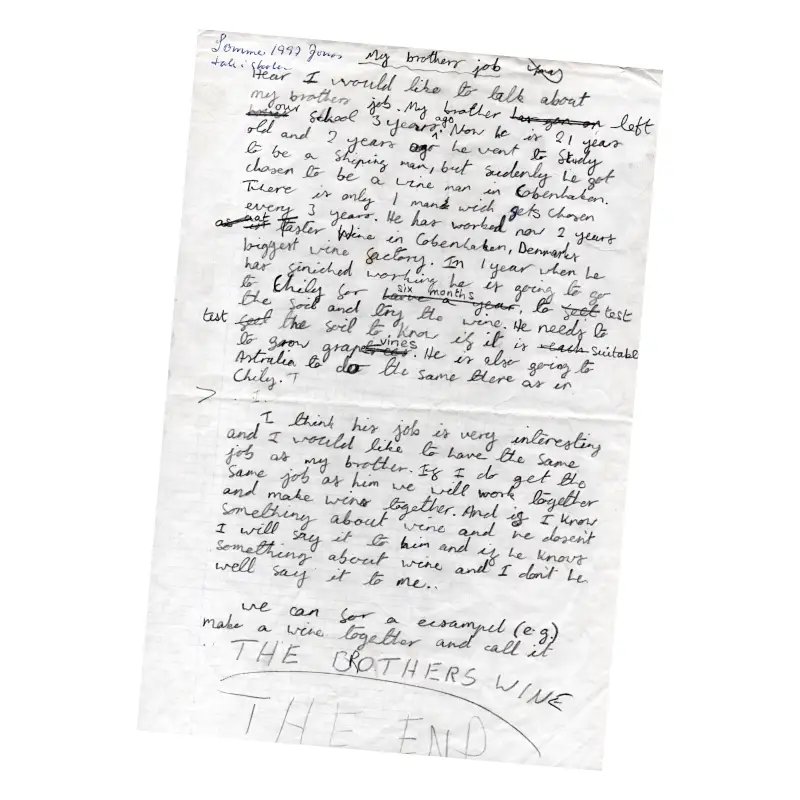 Somme 1997 Jonas My brothers job
Hear I would like to talk about
my brothers job. My brother has gon on left
our school 3 years ago. Now he is 21 years
old and 2 years ago he went to study
to be a shiping man, but sudenly he got
chosen to be a wine man in Cobenhaken.
There is only 1 man wich gets chosen
every 3 years. He has worked now 2 years
as taster Wine in Cobenhaken, Denmarks
biggest wine factory. In 1 year when he
has finiched working he is going to go
to Chily for six months have a year, to feel test
the soil and try the wine. He needs to
test feel the soil to know if it is suitable
to grow grape vines. He is also going to
Astralia to do the same there as in
Chily. T
> . I.
I think his job is very interesting
and I would like to have the same
job as my brother. If I do get the
same job as him we will work together
and make wine together. And if I know
something about wine and he dosent
I will say it to him and if he knows
something about wine and I don't he
well say it to me..
we can for a ecsampel (e.g.)
make a wine together and call it
.. THE BROTHERS WINE
THE END